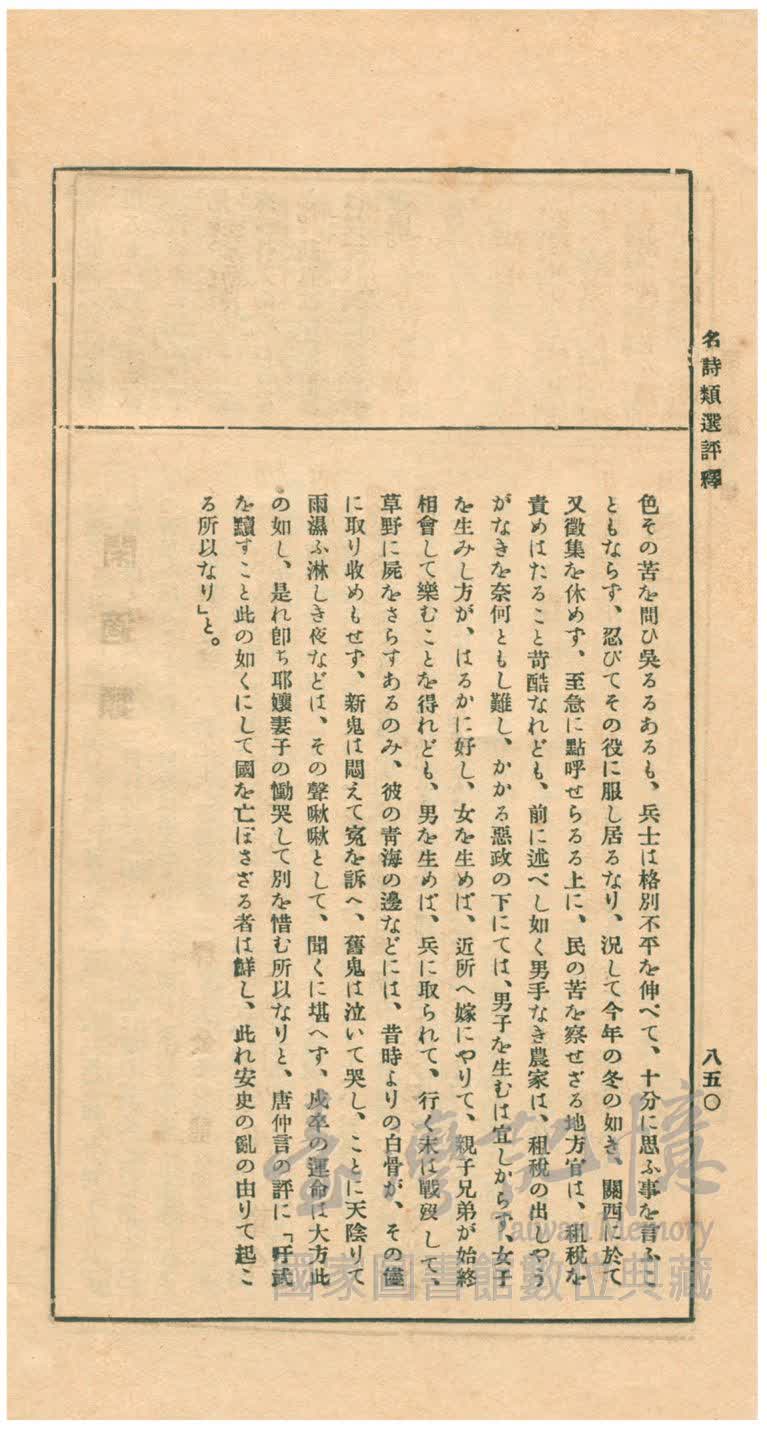 名詩類選評釋
八五〇
色その苦を問ひ吳るるあるも、兵士は格別不平を伸べて、十分に思ふ事を言ふこ
ともならず、忍びてその役に服し居るなり、況して今年の冬の如き、關西に於て
又徵集を休めず、至急に點呼せらるる上に、民の苦を察せざる地方官は、租稅を
責めはたること苛酷なれども、前に述べし如く男手なき農家は、租稅の出しやう
がなきを奈何ともし難し、かかる惡政の下にては、男子を生むは宜しからず、女子
を生みし方が、はるかに好し、女を生めば、近所へ嫁にやりて、親子兄弟が始終
相會して樂むことを得れども、男を生めば、兵に取られて、行く末は戰歿して、
草野に屍をさらすあるのみ、彼の靑海の邊などには、昔時よりの白骨が、その儘
に取り收めもせず、新鬼は悶えて寃を訴へ、舊鬼は泣いて哭し、ことに天陰りて
雨濕ふ淋しき夜などは、その聲啾啾として、聞くに堪へず、戍卒の運命は大方此
の如し、是れ卽ち耶孃妻子の慟哭して別を惜む所以なりと、唐仲言の評に「吁武
を黷すこと此の如くにして國を亡ぼさざる者は鮮し、此れ安史の亂の由りて起こ
る所以なり」と。
臺灣記憶
Taiwan Memory
國家圖書館數位典藏